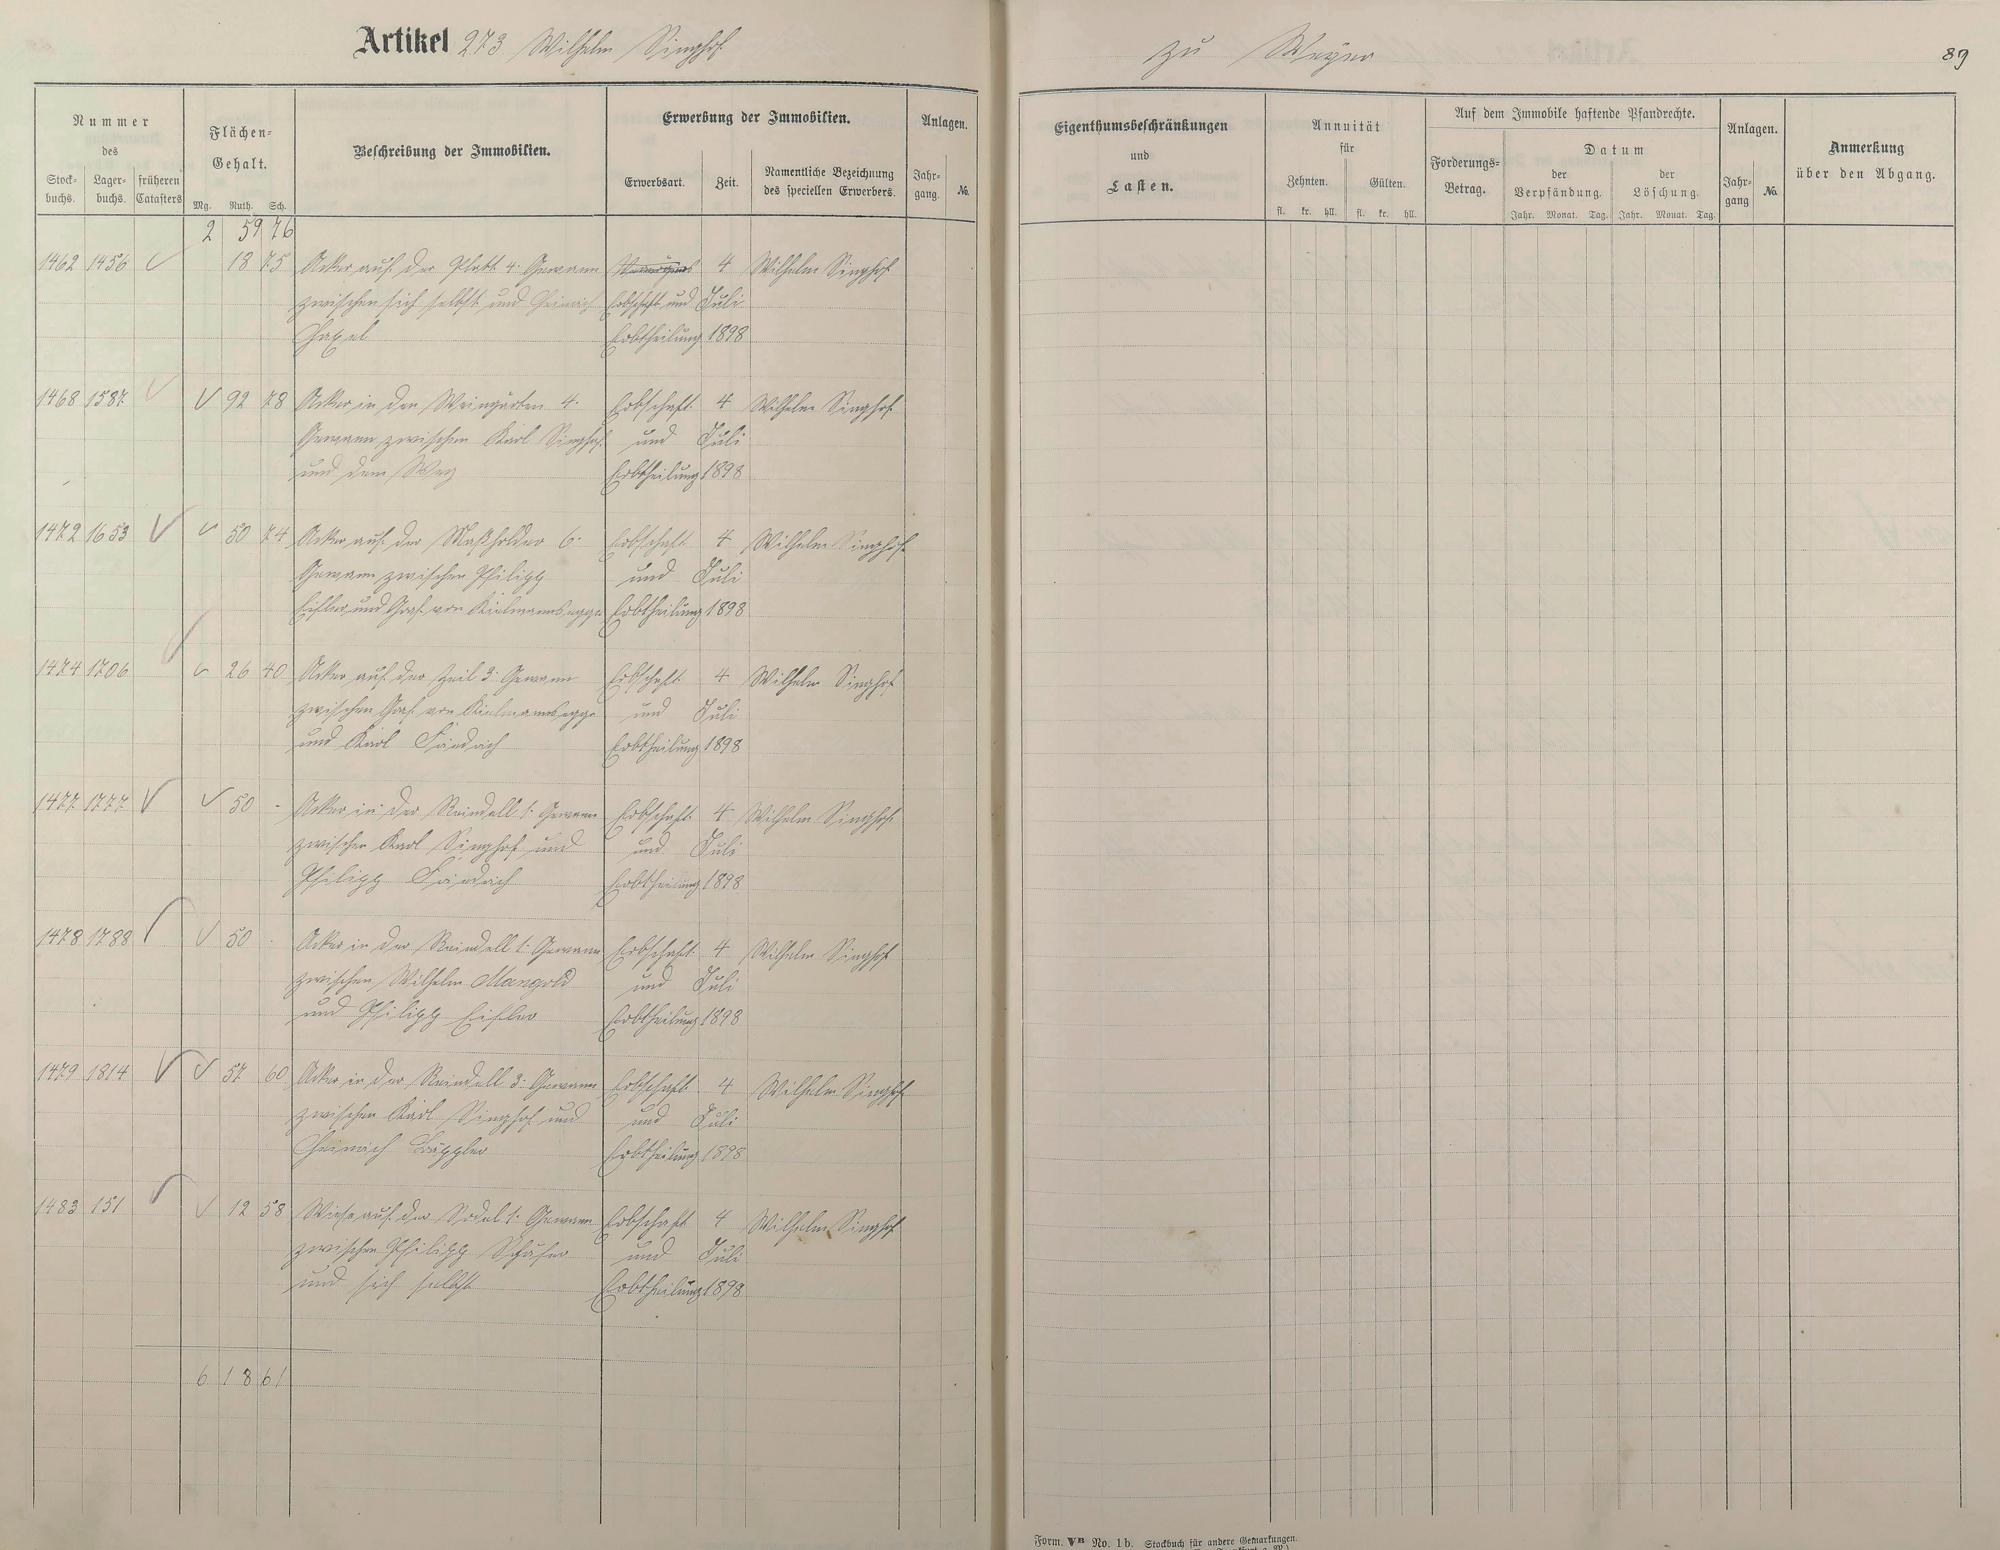 Artikel 273 Wilhelm Singhof
zu Weyer
89
Nummer
des
Stock-
buchs.
Lager-
buchs.
früheren
Catasters
Flächen-
Gehalt.
Mg. Ruth. Sch.
Beschreibung der Immobilien.
Erwerbung der Immobilien.
Erwerbsart.
Zeit.
Namentliche Bezeichnung
des speciellen Erwerbers.
Anlagen.
Jahr-
gang.
No.
Eigenthumsbeschränkungen
und
Lasten.
Annuität
für
Zehnten.
Gülten.
fl. kr. hll. fl. kr. hll.
Auf dem Immobile haftende Pfandrechte.
Forderungs-
Betrag.
Datum
der
Verpfändung.
der
Löschung.
Jahr. Monat. Tag. Jahr. Monat. Tag.
Anlagen.
Jahr-
gang
No.
Anmerkung
über den Abgang.
2 59 76
1462 1456 18 75 Acker auf der Platt 4. Gewann 4 Wilhelm Singhof
zwischen sich selbst und Heinrich Erbschaft und Juli
Erbtheilung 1898
1468 1587 92 78 Acker in den Weingärten 4. Erbschaft 4 Wilhelm Singhof
Gewann zwischen Karl Singhof und Juli
und dem Weg Erbtheilung 1898
1472 1653 50 74 Acker auf der Maßholder 6. Erbschaft 4 Wilhelm Singhof
Gewann zwischen Philipp und Juli
Eisler und Graf von Kielmannsegge Erbtheilung 1898
1474 1706 26 40 Acker auf der Zeil 3. Gewann Erbschaft 4 Wilhelm Singhof
zwischen Graf von Kielmannsegge und Juli
und Karl Erbtheilung 1898
1477 1777 50 - Acker in der Reindell 1. Gewann Erbschaft 4 Wilhelm Singhof
zwischen Karl Singhof und und Juli
Philipp Erbtheilung 1898
1478 1788 50 - Acker in der Reindell 1. Gewann Erbschaft 4 Wilhelm Singhof
zwischen Wilhelm Mangold und Juli
und Philipp Eisler Erbtheilung 1898
1479 1814 57 60 Acker in der Reindell 3. Gewann Erbschaft 4 Wilhelm Singhof
zwischen Karl Singhof und und Juli
Heinrich Erbtheilung 1898
1483 151 12 58 Wiese auf der Sodel 1. Gewann Erbschaft 4 Wilhelm Singhof
zwischen Philipp Schäfer und Juli
und sich selbst Erbtheilung 1898
6 18 61
Form. VB No. 1b. Stockbuch für andere Gemarkungen.